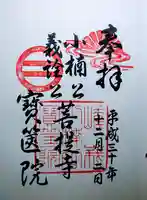 奉拝
平成三十年
十二月二日
小楠公
義詮公
菩提寺
寶筐院